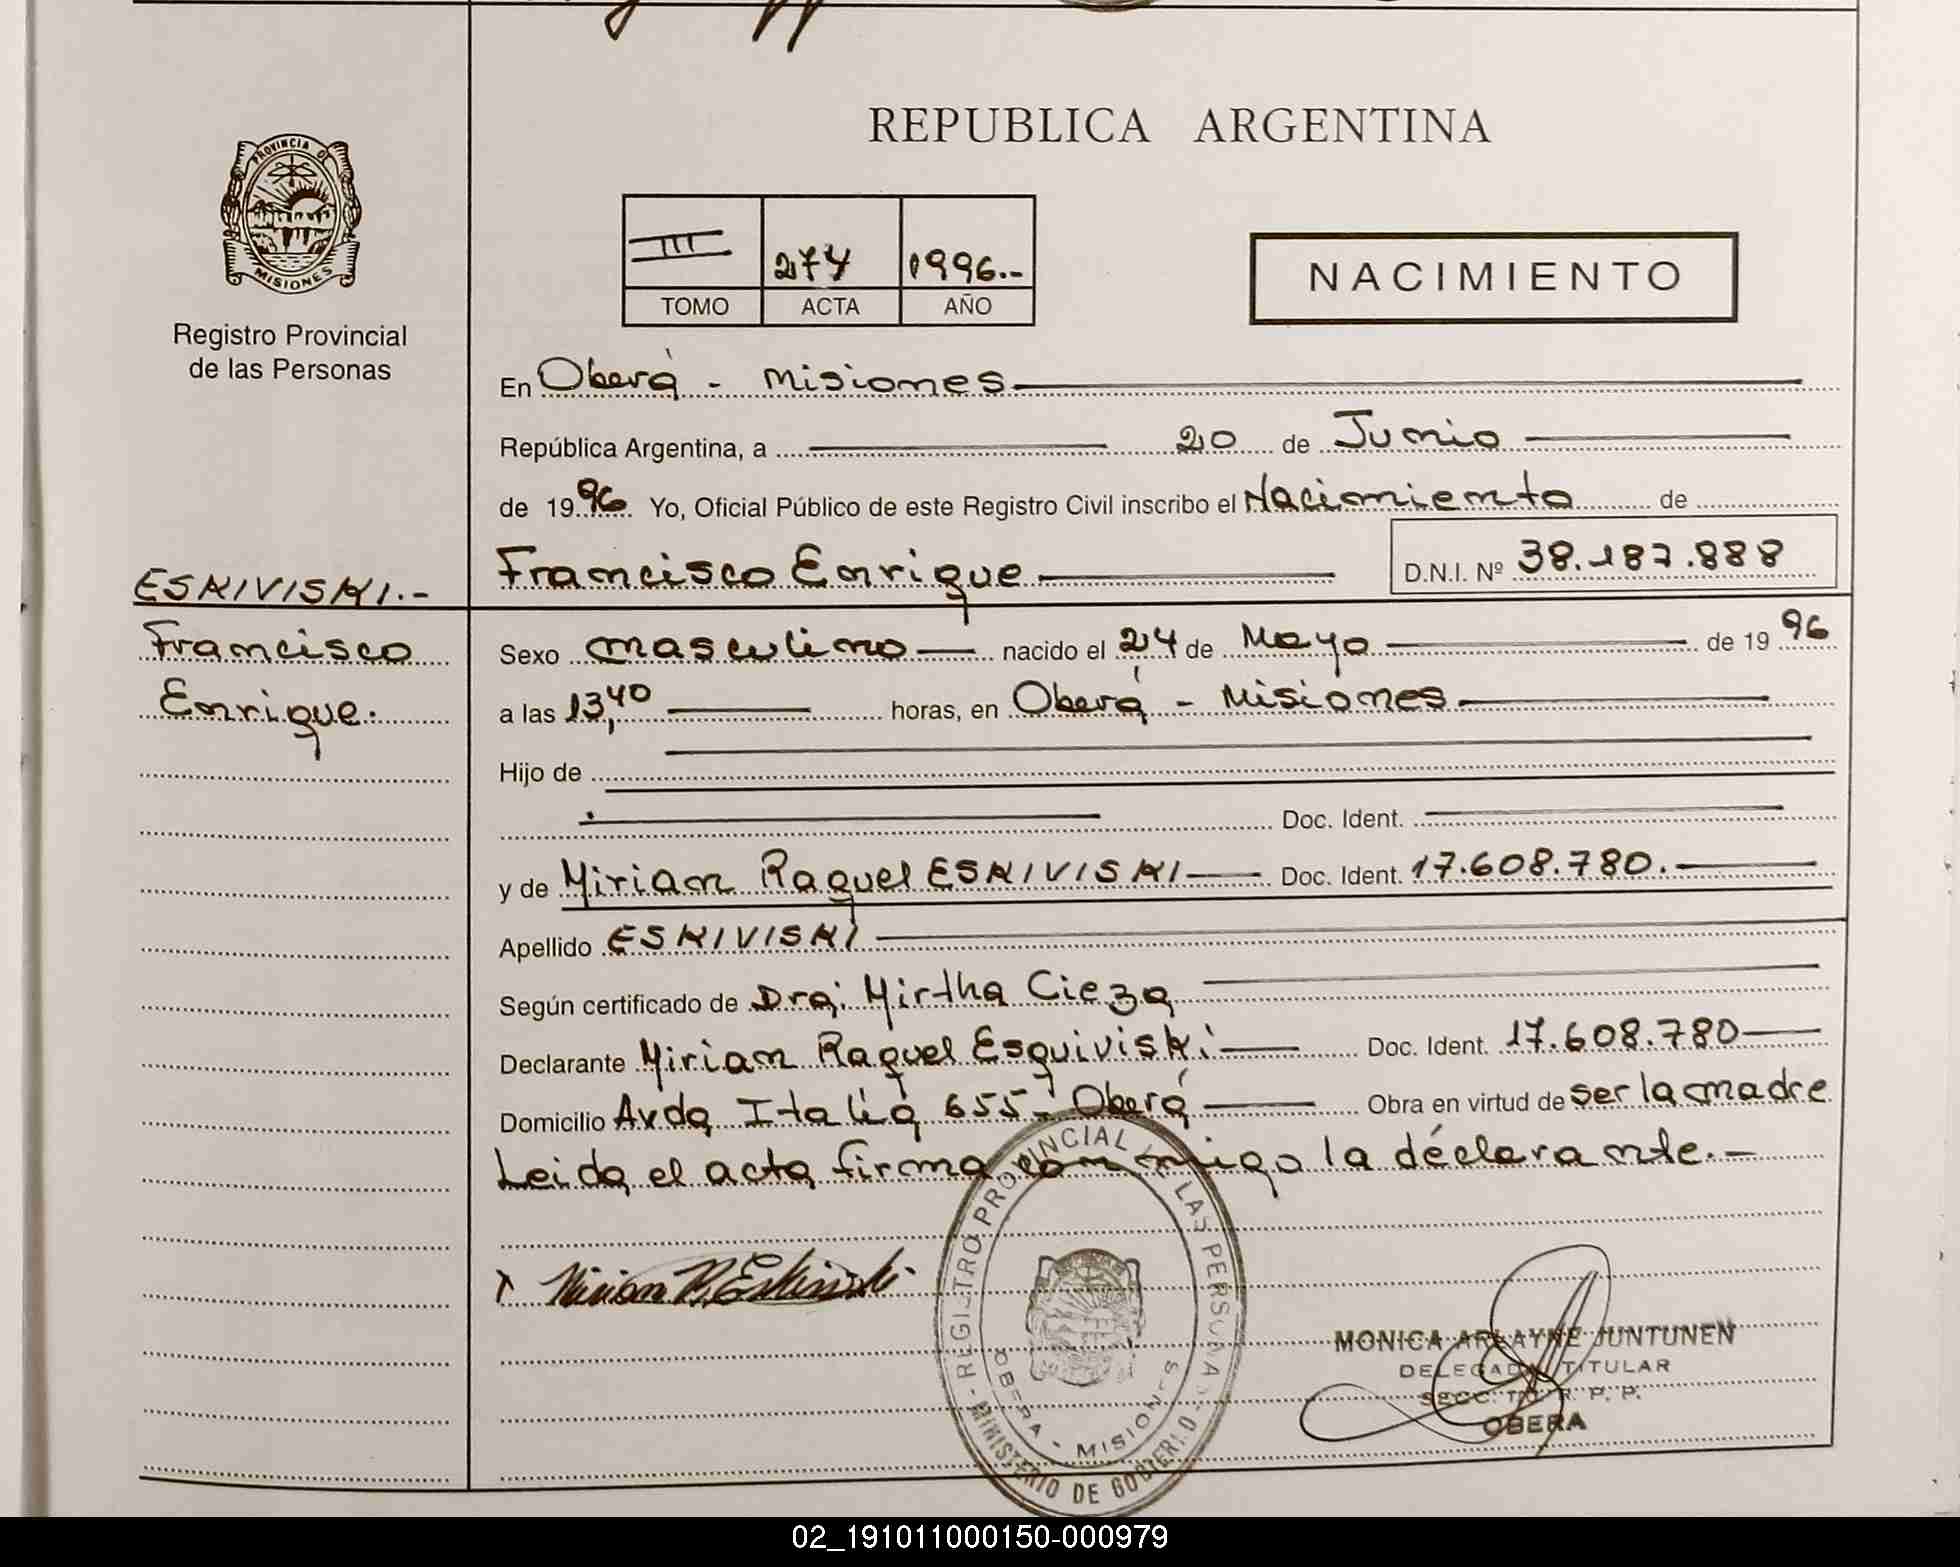 REPUBLICA ARGENTINA
PROVINCIA DE
MISIONES
Registro Provincial
de las Personas
III 274 1996.-
TOMO ACTA AÑO
NACIMIENTO
En Oberá - Misiones
República Argentina, a 20 de Junio
de 1996 Yo, Oficial Público de este Registro Civil inscribo el Nacimiento de
Francisco Enrique D.N.I. Nº 38.187.888
ESKIVISKI.-
Francisco
Enrique.
Sexo masculino nacido el 24 de Mayo de 1996
a las 13,40 horas, en Oberá - Misiones
Hijo de
Doc. Ident.
y de Miriam Raquel ESKIVISKI Doc. Ident. 17.608.780.
Apellido ESKIVISKI
Según certificado de Dra: Mirtha Cieza
Declarante Miriam Raquel Esquiviski Doc. Ident. 17.608.780
Domicilio Avda Italia 655- Oberá Obra en virtud de ser la madre
Leida el acta firma conmigo la declarante.-
Mirian R. Eskiviski.
REGISTRO PROVINCIAL DE LAS PERSONAS
OBERA - MISIONES
MINISTERIO DE GOBIERNO
MONICA ARLAYNE JUNTUNEN
DELEGADA TITULAR
SECC. R. P. P.
OBERA
02_191011000150-000979